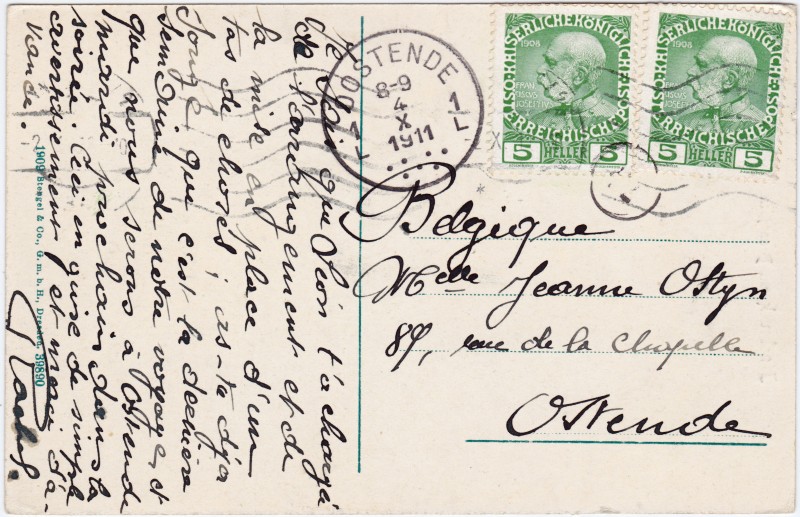 Je vois que Léon t'a chargé
de l'arrangement et de
la mise en place d'un
tas de choses; as-tu déjà
songé que c'est la dernière
semaine de notre voyage et
que nous serons à Ostende
mardi prochain dans la
soirée. Ceci en guise de simple
avertissement et merci d'a-
vance.
1909 Stengel & Co., G. m. b. H., Dresden. 39890
OSTENDE
8-9
4
X
1911
1 L
1 L
KAISERLICHE KÖNIGLICHE
ÖSTERREICHISCHE POST
1908
5 HELLER 5
KAISERLICHE KÖNIGLICHE
ÖSTERREICHISCHE POST
1908
5 HELLER 5
Belgique
Melle Jeanne Ostyn
89, rue de la Chapelle
Ostende